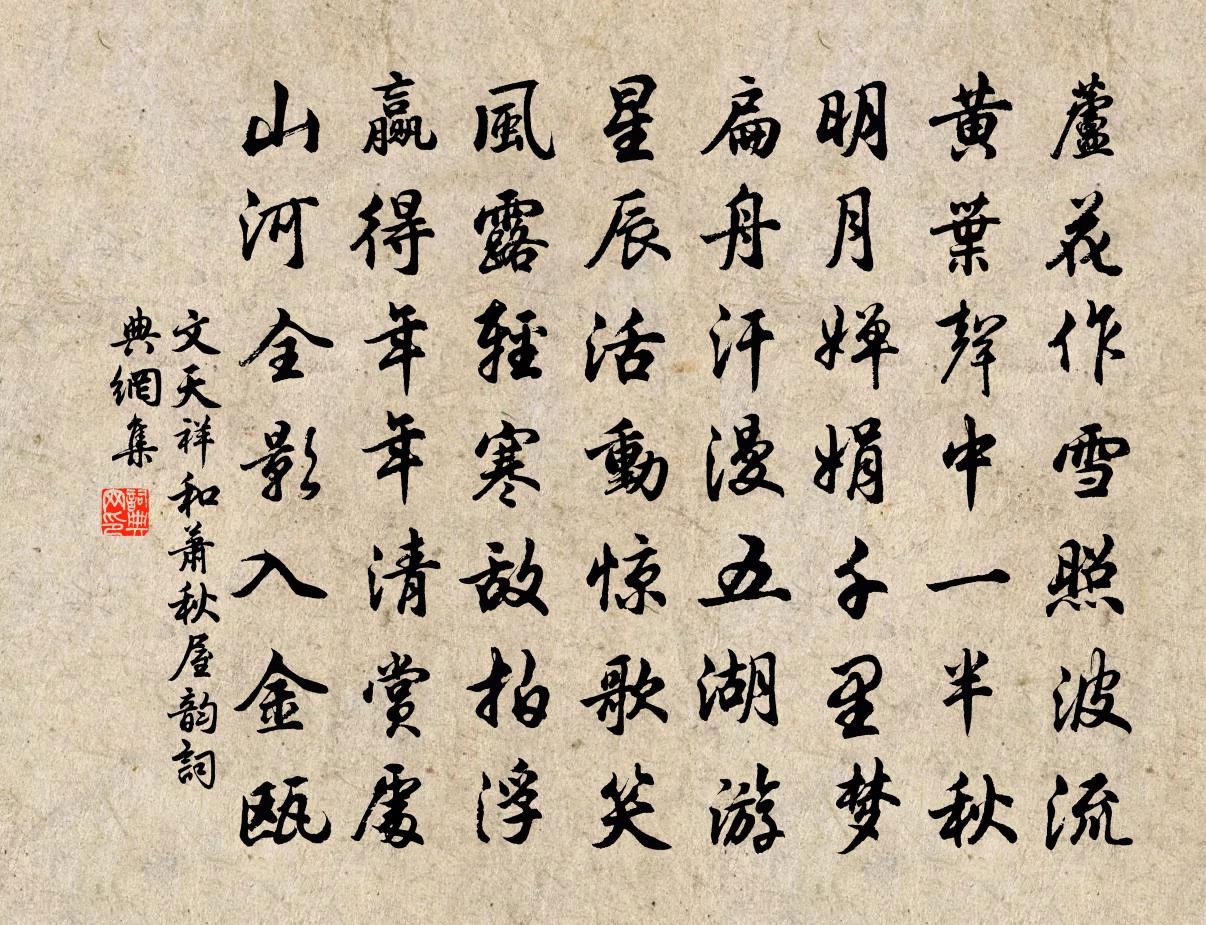 蘆花作雪照波流
黄葉聲中一半秋
明月嬋娟千里梦
扁舟汗漫五湖游
星辰活動惊歌笑
風露輕寒敌拍浮
赢得年年清赏處
山河全影入金瓯
文天祥和萧秋屋韵詞
典網集
詞典网印